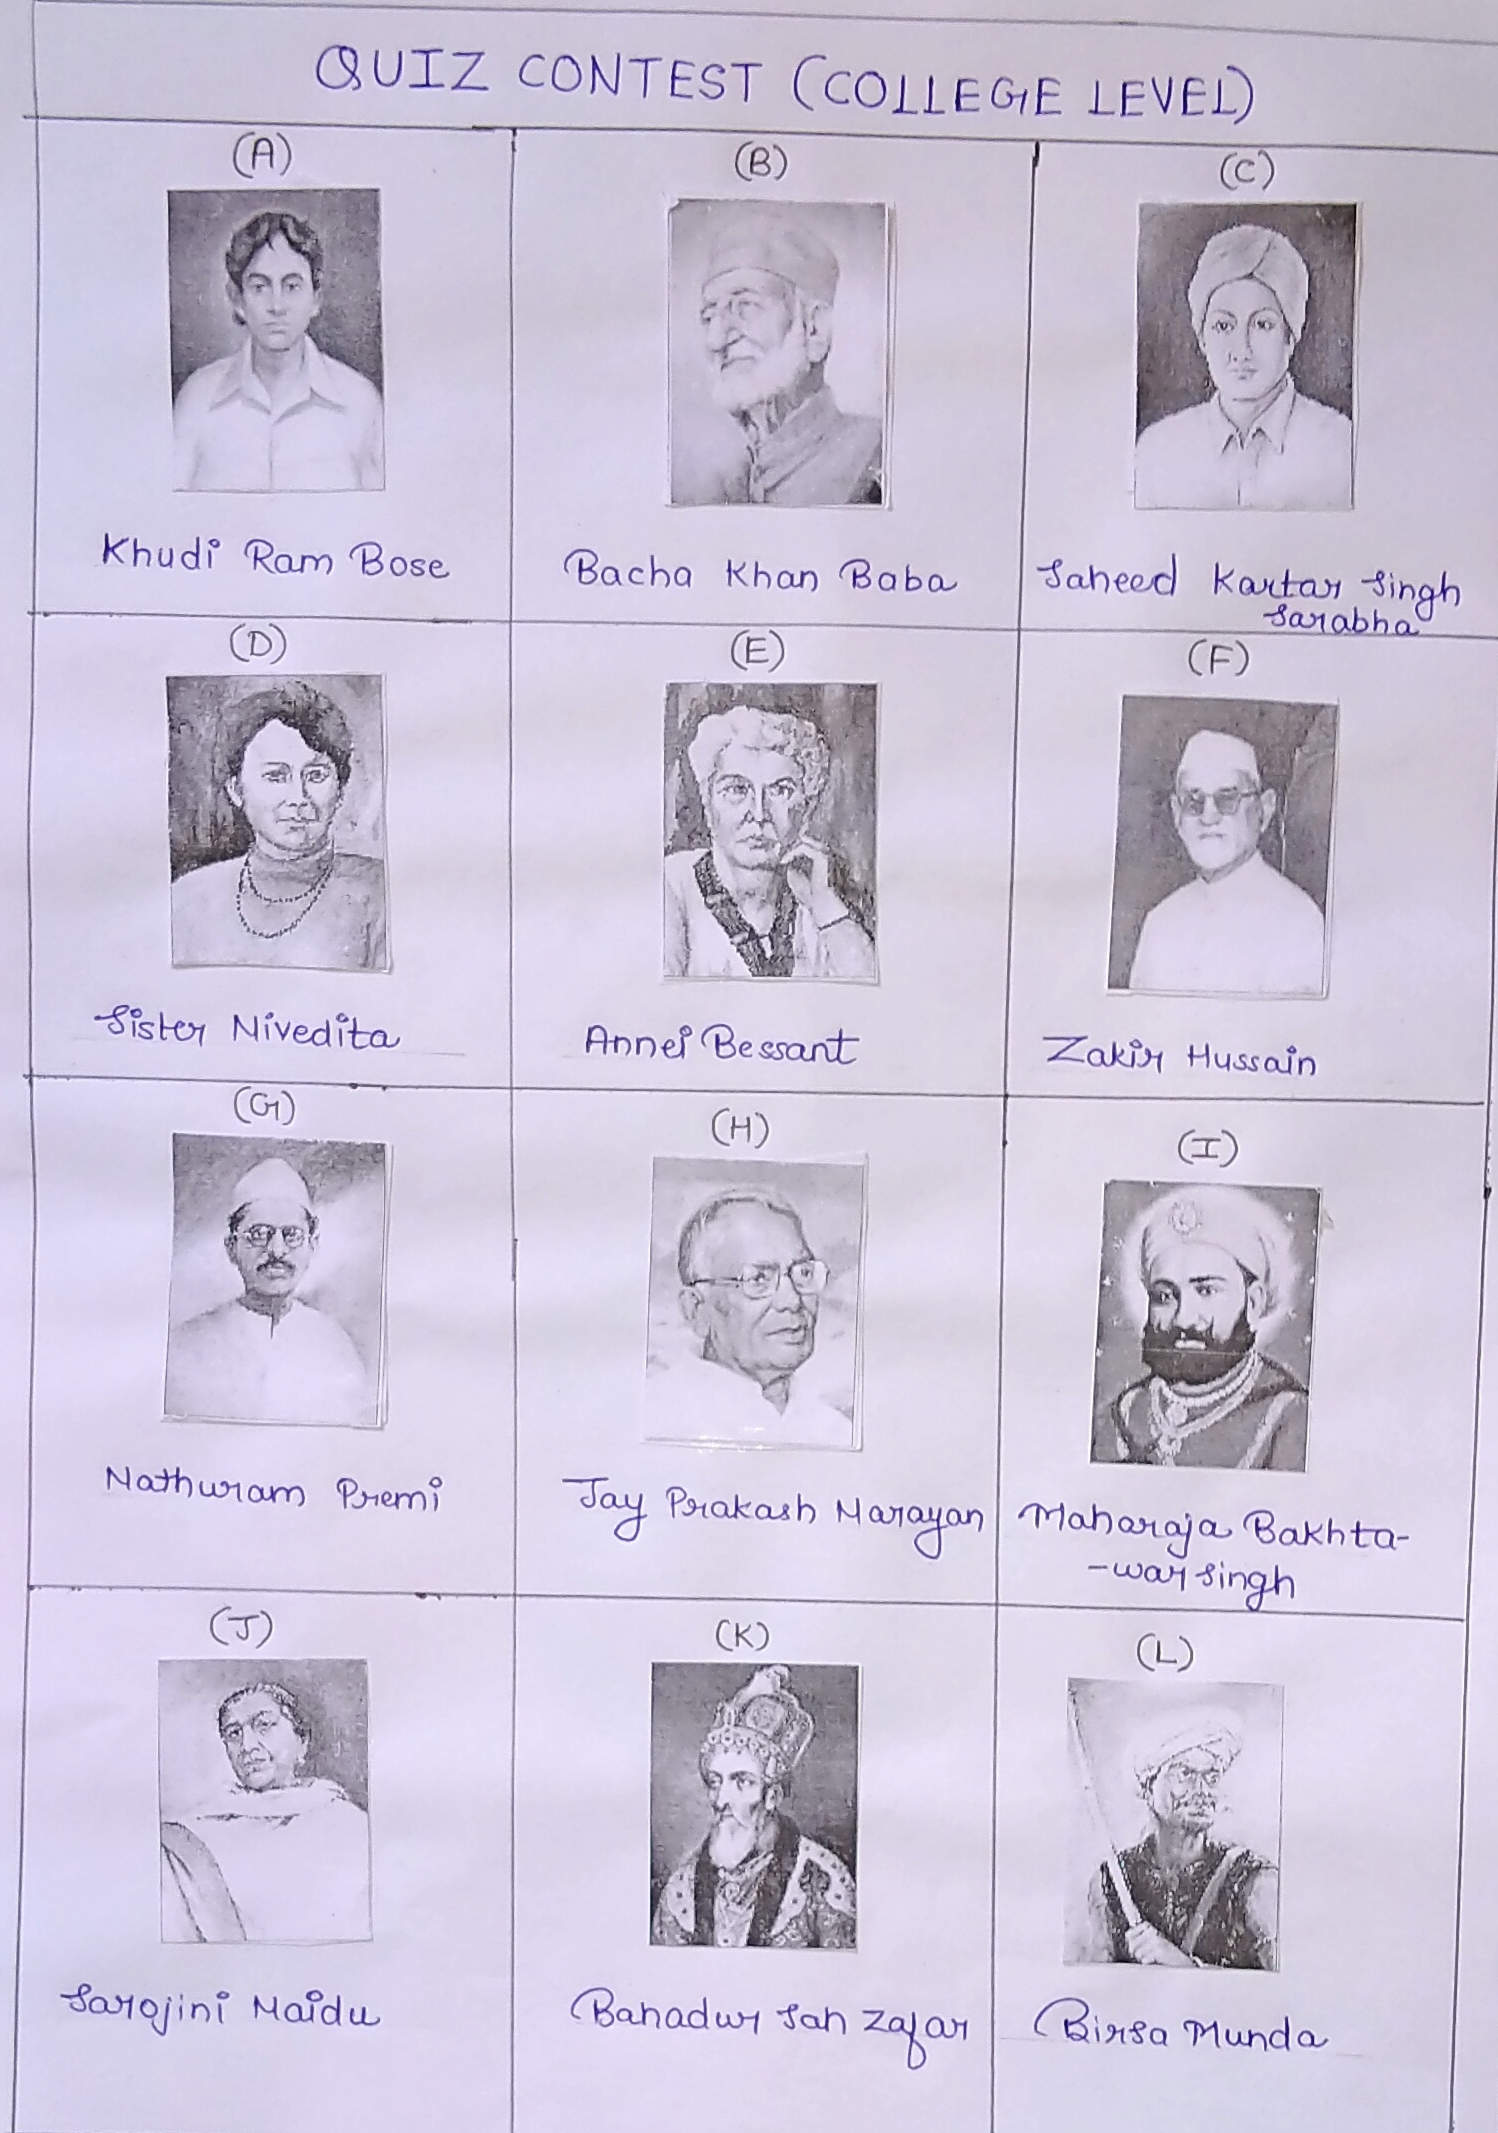 QUIZ CONTEST (COLLEGE LEVEL)
(A)
(B)
(C)
Khudi Ram Bose
Bacha Khan Baba
Saheed Kartar Singh
Sarabha
(D)
(E)
(F)
Sister Nivedita
Annei Bessant
Zakir Hussain
(G)
(H)
(I)
Nathuram Premi
Jay Prakash Narayan
Maharaja Bakhta-
-war Singh
(J)
(K)
(L)
Sarojini Naidu
Bahadur Sah Zafar
Birsa Munda